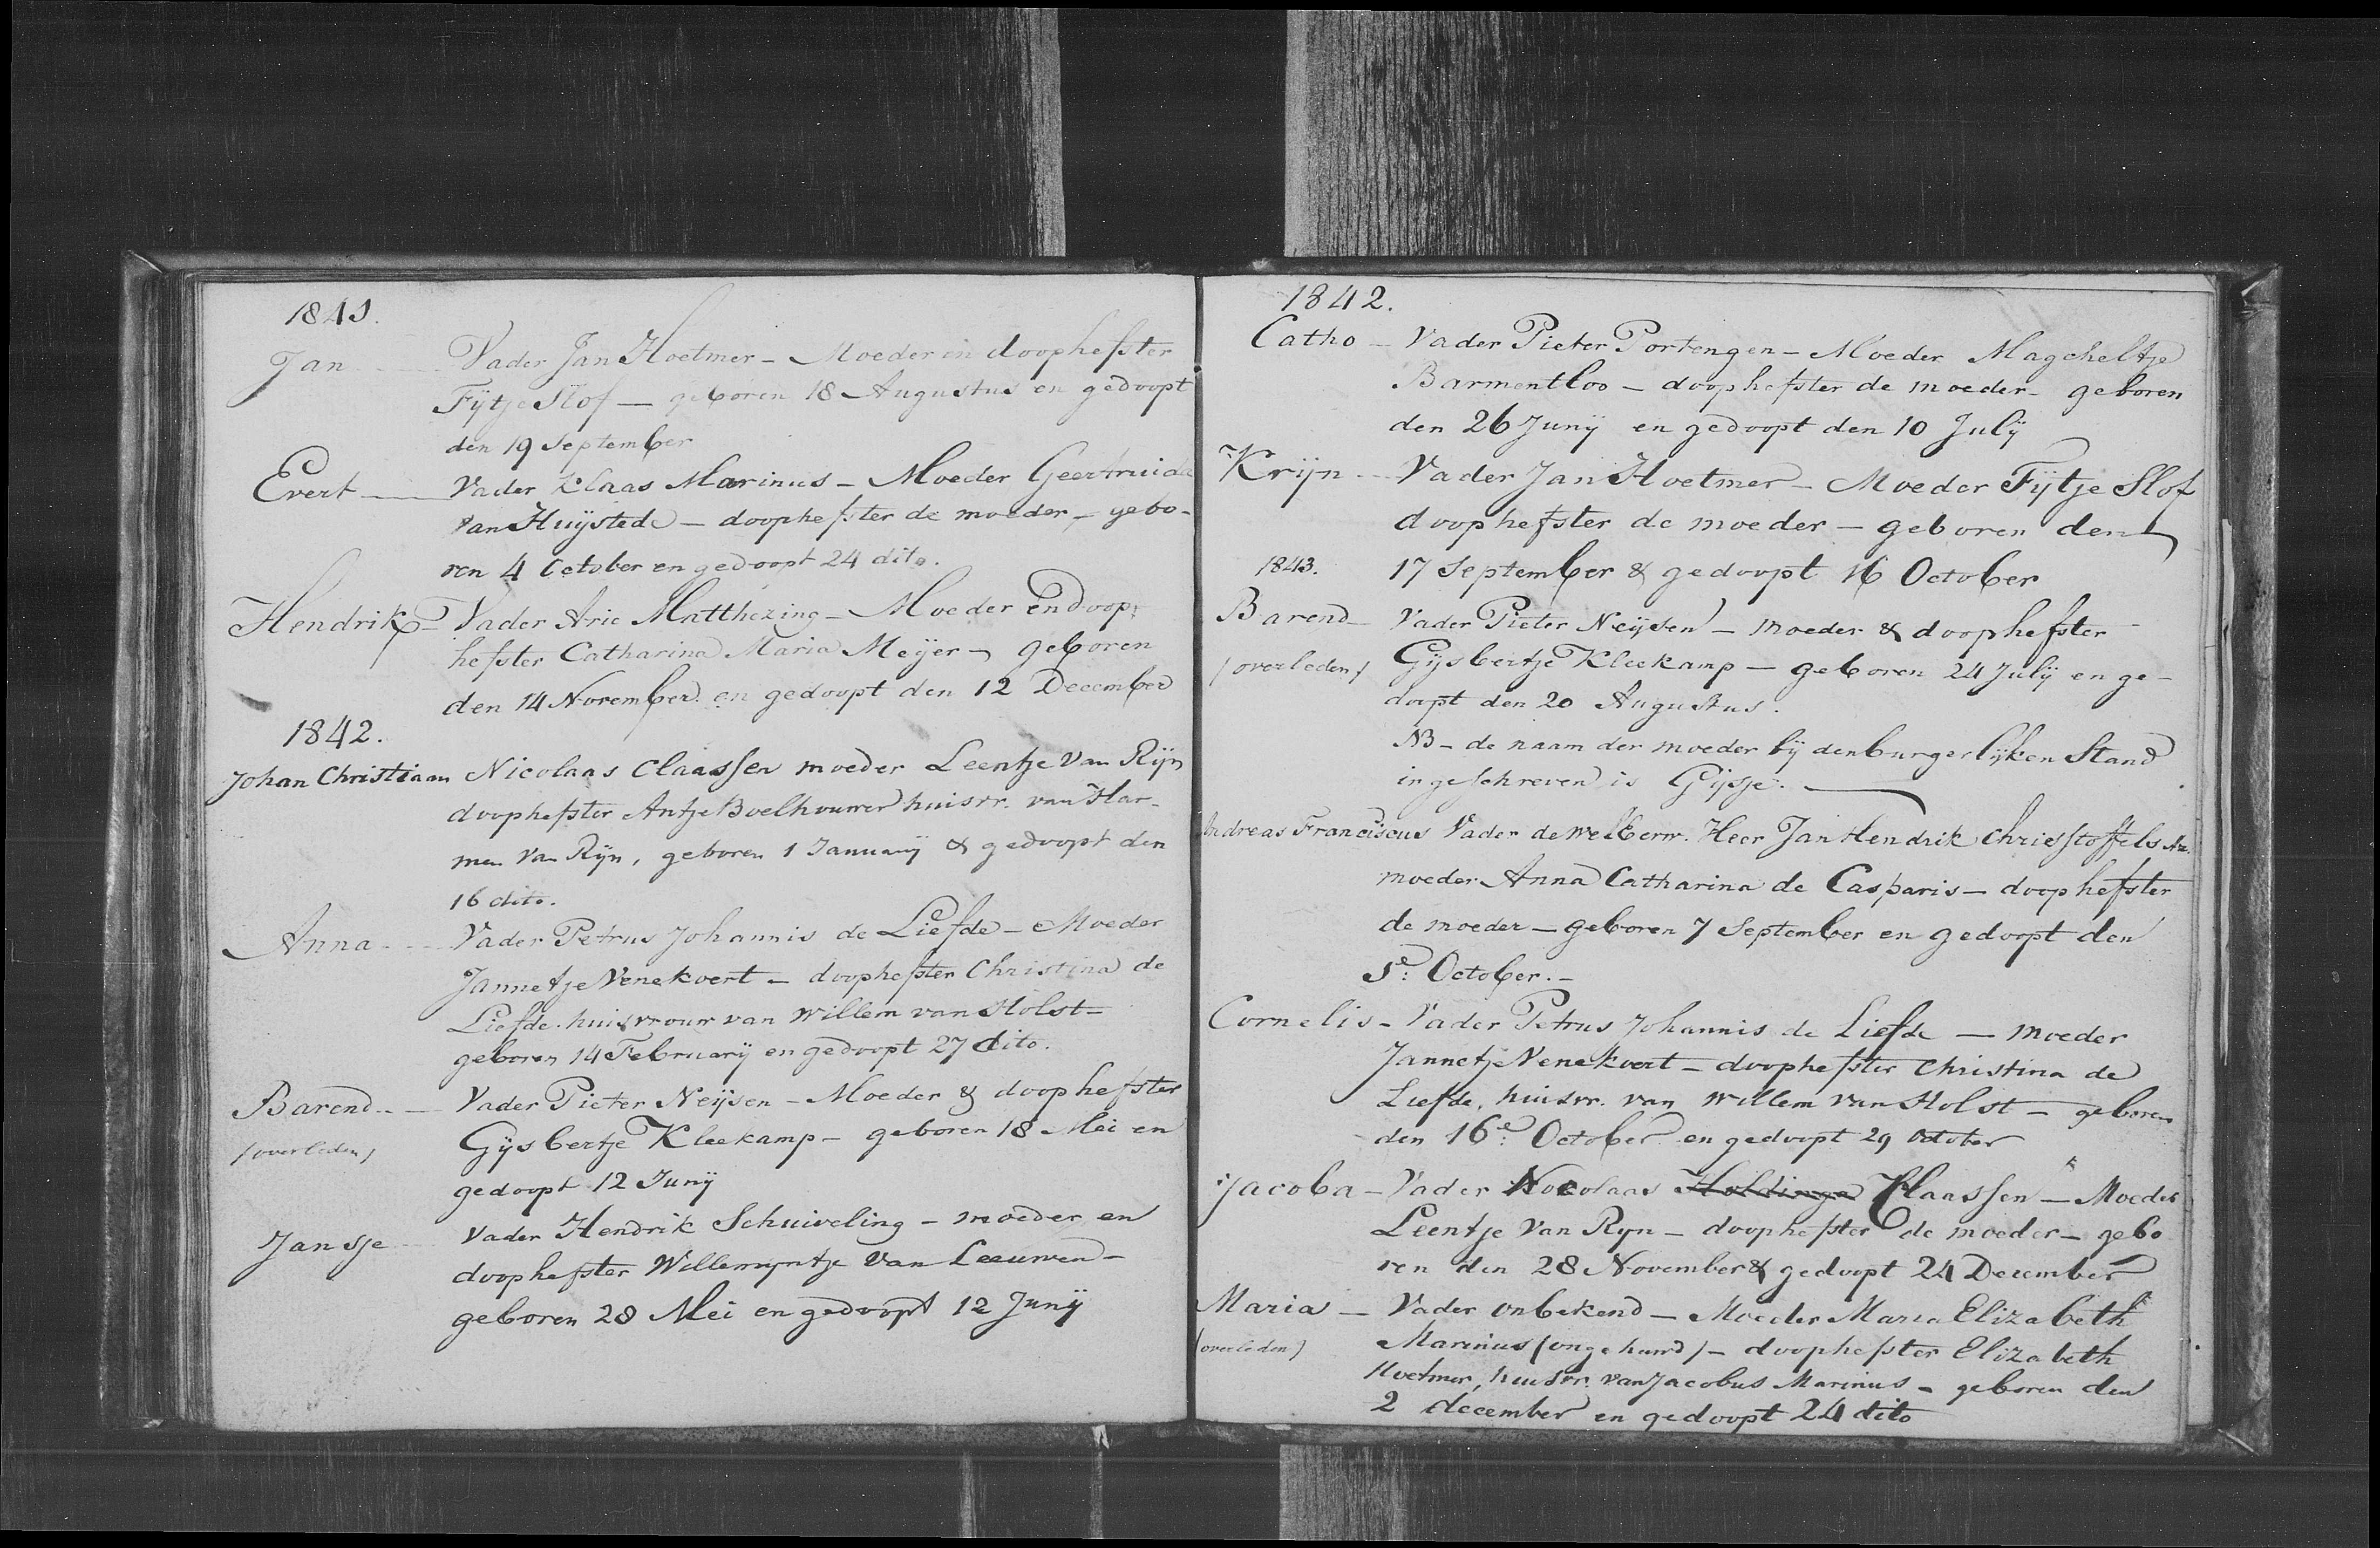 1841.
Jan — Vader Jan Hoetmer – Moeder en doophefster
Fijtje Slof — geboren 18 Augustus en gedoopt
den 19 September
Evert — Vader Klaas Marinus – Moeder Geertruida
van Huijstede – doophefster de moeder – gebo-
ren 4 October en gedoopt 24 dito.
Hendrik – Vader Arie Matthezing – Moeder en doop-
hefster Catharina Maria Meijer – geboren
den 14 November en gedoopt den 12 December
1842.
Johan Christiaan Nicolaas Claassen moeder Leentje Van Rijn
doophefster Antje Boelhouwer huisvr. van Har-
men Van Rijn, geboren 1 January & gedoopt den
16 dito.
Anna — Vader Petrus Johannis de Liefde – Moeder
Jannetje Venekoert – doophefster Christina de
Liefde huisvrouw van Willem van Holst –
geboren 14 Februarij en gedoopt 27 dito.
Barend — Vader Pieter Neijsen – Moeder & doophefster
(overleden) Gijsbertje Kleekamp – geboren 18 Mei en
gedoopt 12 Junij
Jansje — Vader Hendrik Schuiveling – moeder en
doophefster Willemijntje Van Leeuwen –
geboren 28 Mei en gedoopt 12 Junij
1842.
Catho – Vader Pieter Portengen – Moeder Magcheltje
Barmentloo – doophefster de moeder – geboren
den 26 Junij en gedoopt den 10 Julij
Krijn — Vader Jan Hoetmer – Moeder Fijtje Slof
doophefster de moeder – geboren den
1843. 17 September & gedoopt 16 October
Barend – Vader Pieter Neijsen – moeder & doophefster
(overleden) Gijsbertje Kleekamp – geboren 24 Julij en ge-
doopt den 20 Augustus.
NB – de naam der moeder bij den burgerlijken Stand
ingeschreven is Gijsje.
Andreas Franciscus Vader de welEerw. Heer Jan Hendrik Chriestoffels Az.
moeder Anna Catharina de Casparis – doophefster
de moeder – geboren 7 September en gedoopt den
1e: October. –
Cornelis – Vader Petrus Johannis de Liefde — moeder
Jannetje Venekoert – doophefster Christina de
Liefde, huisvr. van Willem van Holst – geboren
den 16e: October en gedoopt 29 October
Jacoba – Vader Nicolaas Holdinga Claassen – Moeder
Leentje Van Rijn – doophefster de moeder – gebo
ren den 28 November & gedoopt 24 December
Maria – Vader onbekend – Moeder Maria Elizabeth
(overleden) Marinus (ongehuwd) – doophefster Elizabeth
Hoetmer, huisvr. van Jacobus Marinus – geboren den
2 december en gedoopt 24 dito